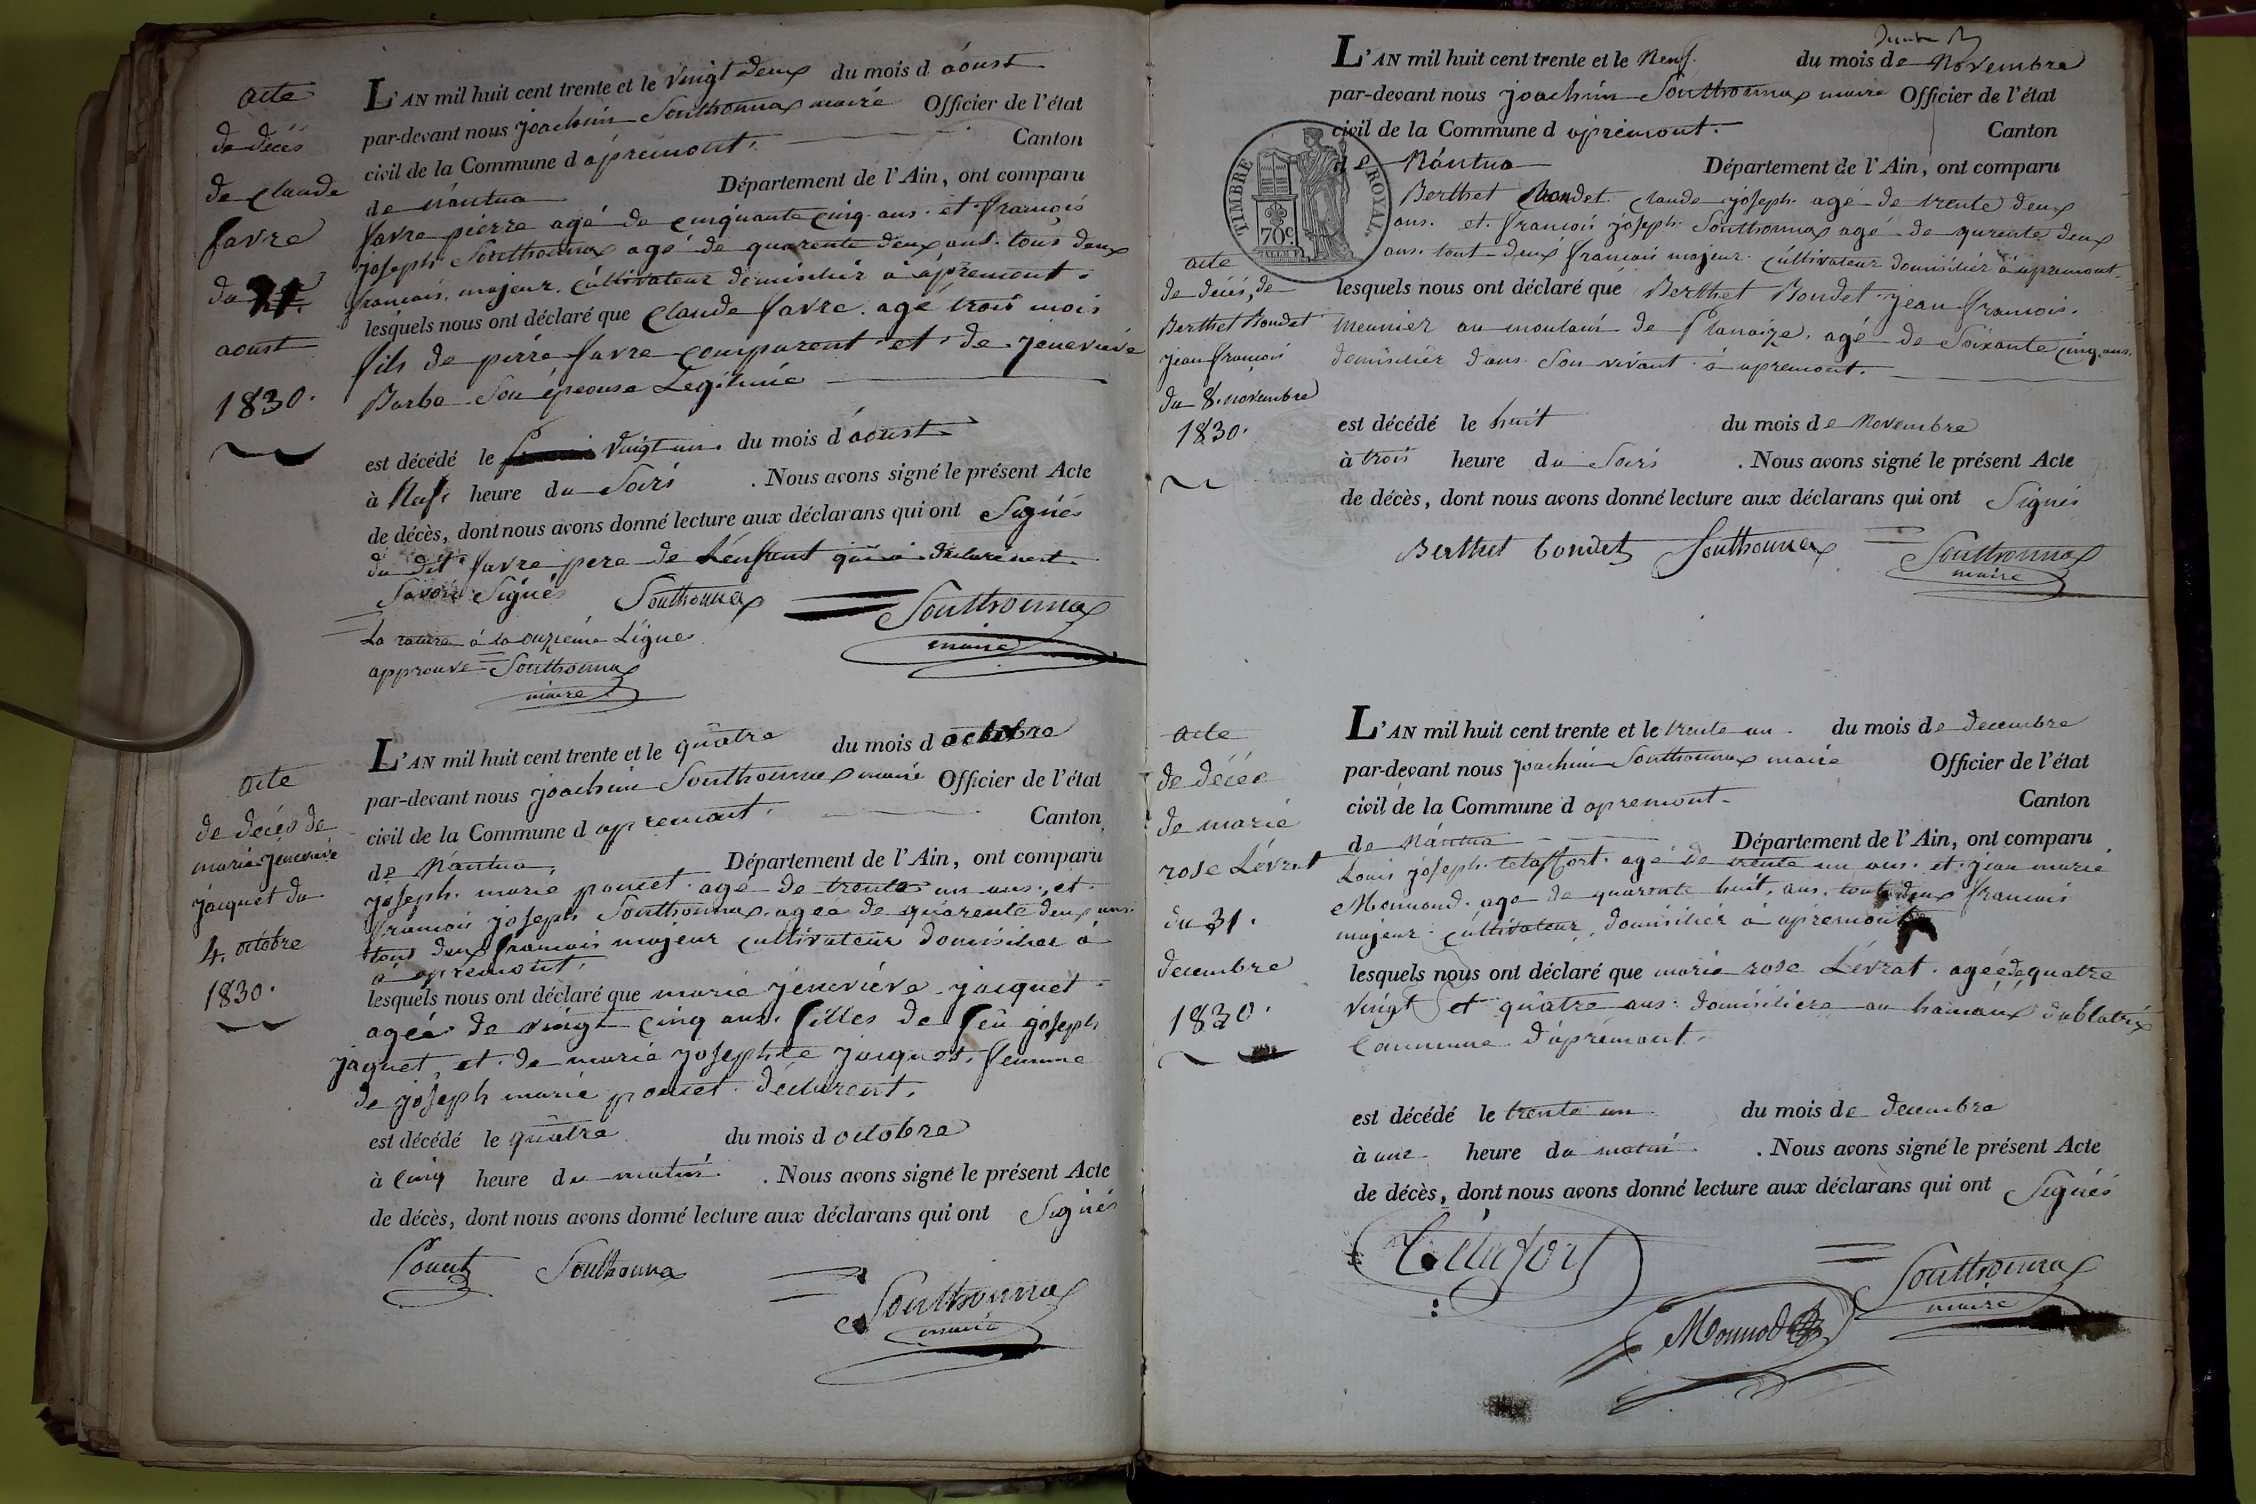 acte
de décès
de claude
favre
du 21
aoust
1830.
L'AN mil huit cent trente et le vingt deux du mois d'aoust
par-devant nous joachim Southonnax maire Officier de l'état
civil de la Commune d apremont. Canton
de nantua Département de l'Ain, ont comparu
favre pierre agé de cinquante cinq ans. et françois
joseph Southonnax agé de quarente deux ans. tous deux
francais. majeur. cultivateur domisilier à apremont.
lesquels nous ont déclaré que claude favre. agé trois mois
fils de pierre favre comparent et de jenevieve
Barbe Son épouse Legitime
est décédé le vingt un du mois d'aoust
à heure du Soirs . Nous avons signé le présent Acte
de décès, dont nous avons donné lecture aux déclarans qui ont Signés
du dit favre pere de Lenfant qui a declaré nest
Savoir Signés Southonnax Southonnax
maire
La rature à la onzieme Ligne
approuvé Southonnax
maire
acte
de decés de
marie jenevieve
jacquet du
4. octobre
1830.
L'AN mil huit cent trente et le quatre du mois d octobre
par-devant nous joachim Southonnax maire Officier de l'état
civil de la Commune d apremont. Canton
de Nantua, Département de l'Ain, ont comparu
joseph marie poncet agé de trente un ans, et
francois joseph Southonnax agée de quarente deux ans.
tous deux francais majeur cultivateur domisilier à
à apremont,
lesquels nous ont déclaré que marie jenevieve jacquet
agée de vingt cinq ans. filles de feu joseph
jaquet, et de marie josephte jacquet. femme
de joseph marie poncet declarent.
est décédé le quatre du mois d octobre
à cinq heure du matin . Nous avons signé le présent Acte
de décès, dont nous avons donné lecture aux déclarans qui ont Signés
Poncet Southonnax
Southonnax
maire
TIMBRE ROYAL.
70c
acte
de décés, de
Berthet Bondet
jean francois
du 8. novembre
1830.
L'AN mil huit cent trente et le Neuf. du mois de Novembre
par-devant nous joachim Southonnax maire Officier de l'état
civil de la Commune d apremont. Canton
de Nantua Département de l'Ain, ont comparu
Berthet Bondet claude joseph. agé de trente deux
ans. et francois joseph Southonnax agé de qurente deux
ans. tout deux francais majeur. cultivateur domisilier à apremont.
lesquels nous ont déclaré que Berthet Bondet jean francois.
meunier au moulain de agé de Soixante cinq ans.
domisilier dans Son vivant à apremont.
est décédé le huit du mois de Novembre
à trois heure du Soirs . Nous avons signé le présent Acte
de décès, dont nous avons donné lecture aux déclarans qui ont Signés
Berthet bondet Southonnax Southonnax
maire
acte
de décés
de marie
rose Lévrat
du 31.
decembre
1830.
L'AN mil huit cent trente et le trente un du mois de decembre
par-devant nous joachim Southonnax maire Officier de l'état
civil de la Commune d apremont. Canton
de Nantua Département de l'Ain, ont comparu
Louis joseph telaffort. agé de trente un ans. et jean marie
Monnod. age de quarente huit. ans. tout deux francais
majeur. cultivateur, domisilier à apremont
lesquels nous ont déclaré que marie rose Lévrat. agée de quatre
vingt et quatre ans. domisiliere au hamaux
Commune d'apremont.
est décédé le trente un du mois de decembre
à une heure du matin . Nous avons signé le présent Acte
de décès, dont nous avons donné lecture aux déclarans qui ont Signés
Télafort
Southonnax
maire
Monnod